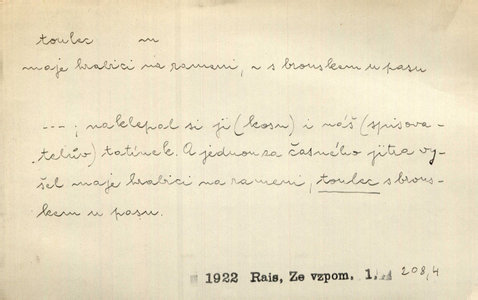 toulec m
maje hrabici na rameni, ~ s brouskem u pasu
---; naklepal si ji (kosu) i náš (spisova-
telův) tatínek. A jednou za časného jitra vy-
šel maje hrabici na rameni, toulec s brous-
kem u pasu.
1922 Rais, Ze vzpom. 1. 208,4